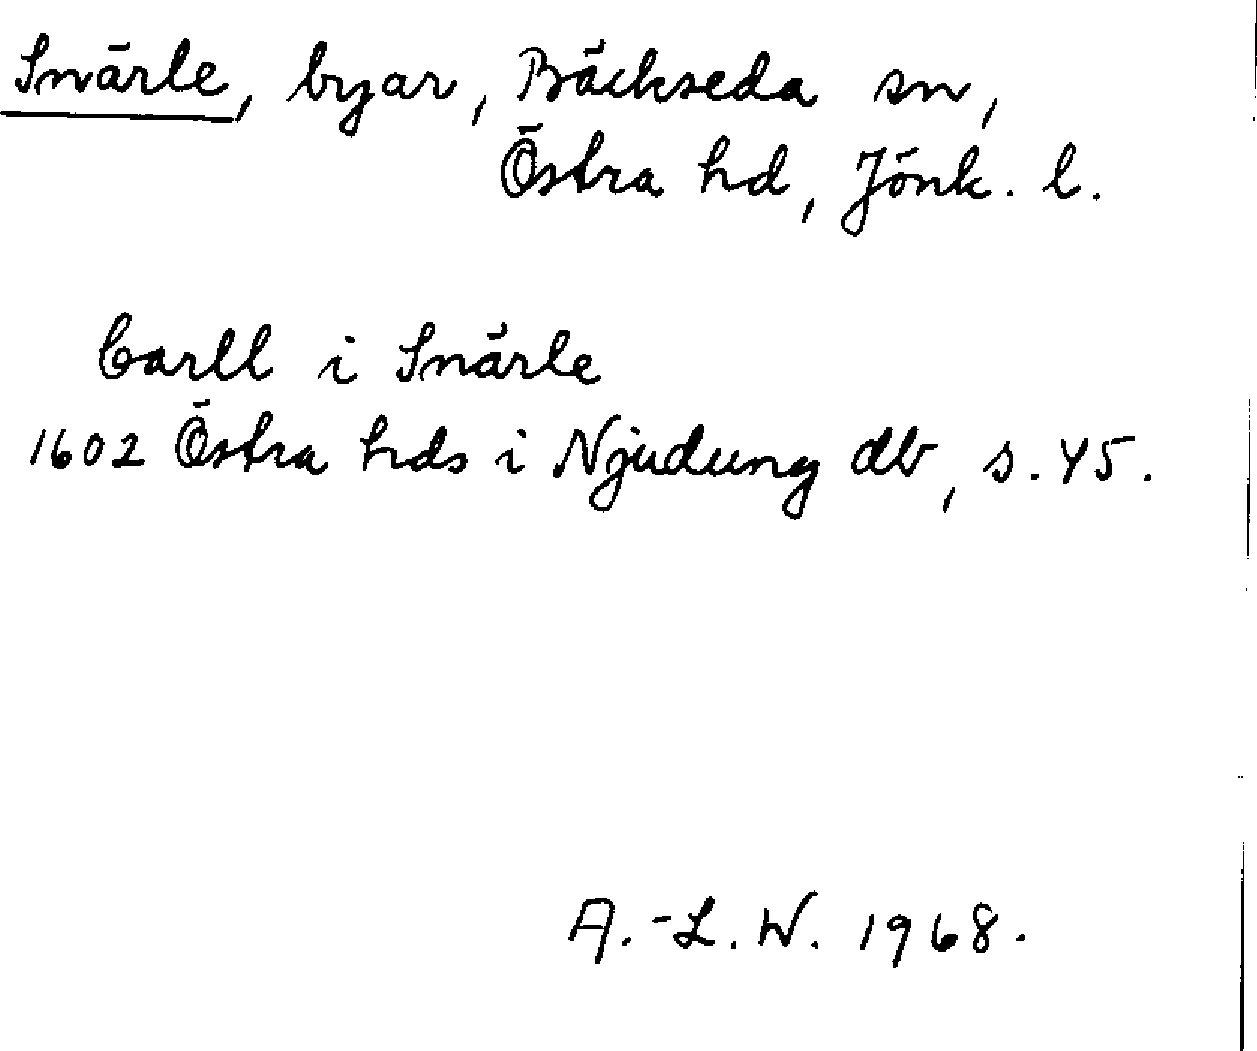 Snärle, byar, Bäckseda sn,
Östra hd, Jönk. l.
Carll i Snärle
1602 Östra hds i Njudung db, s. 45.
A.-L. W. 1968.